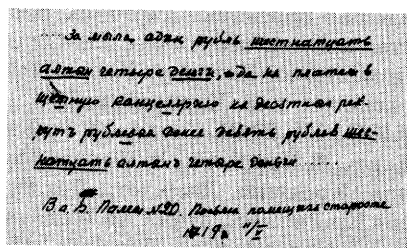 За мыла адин рубль шестнатцать
алтын четыре деньги, да на платеж в
Щетную Канцелярию на десятная рек-
рутъ рублевая денег девять рублев шес-
натцать алтанъ четыре деньги .....
В.а.Б. Палем. №20. Письма помещика старосте
1719 г. 11/V